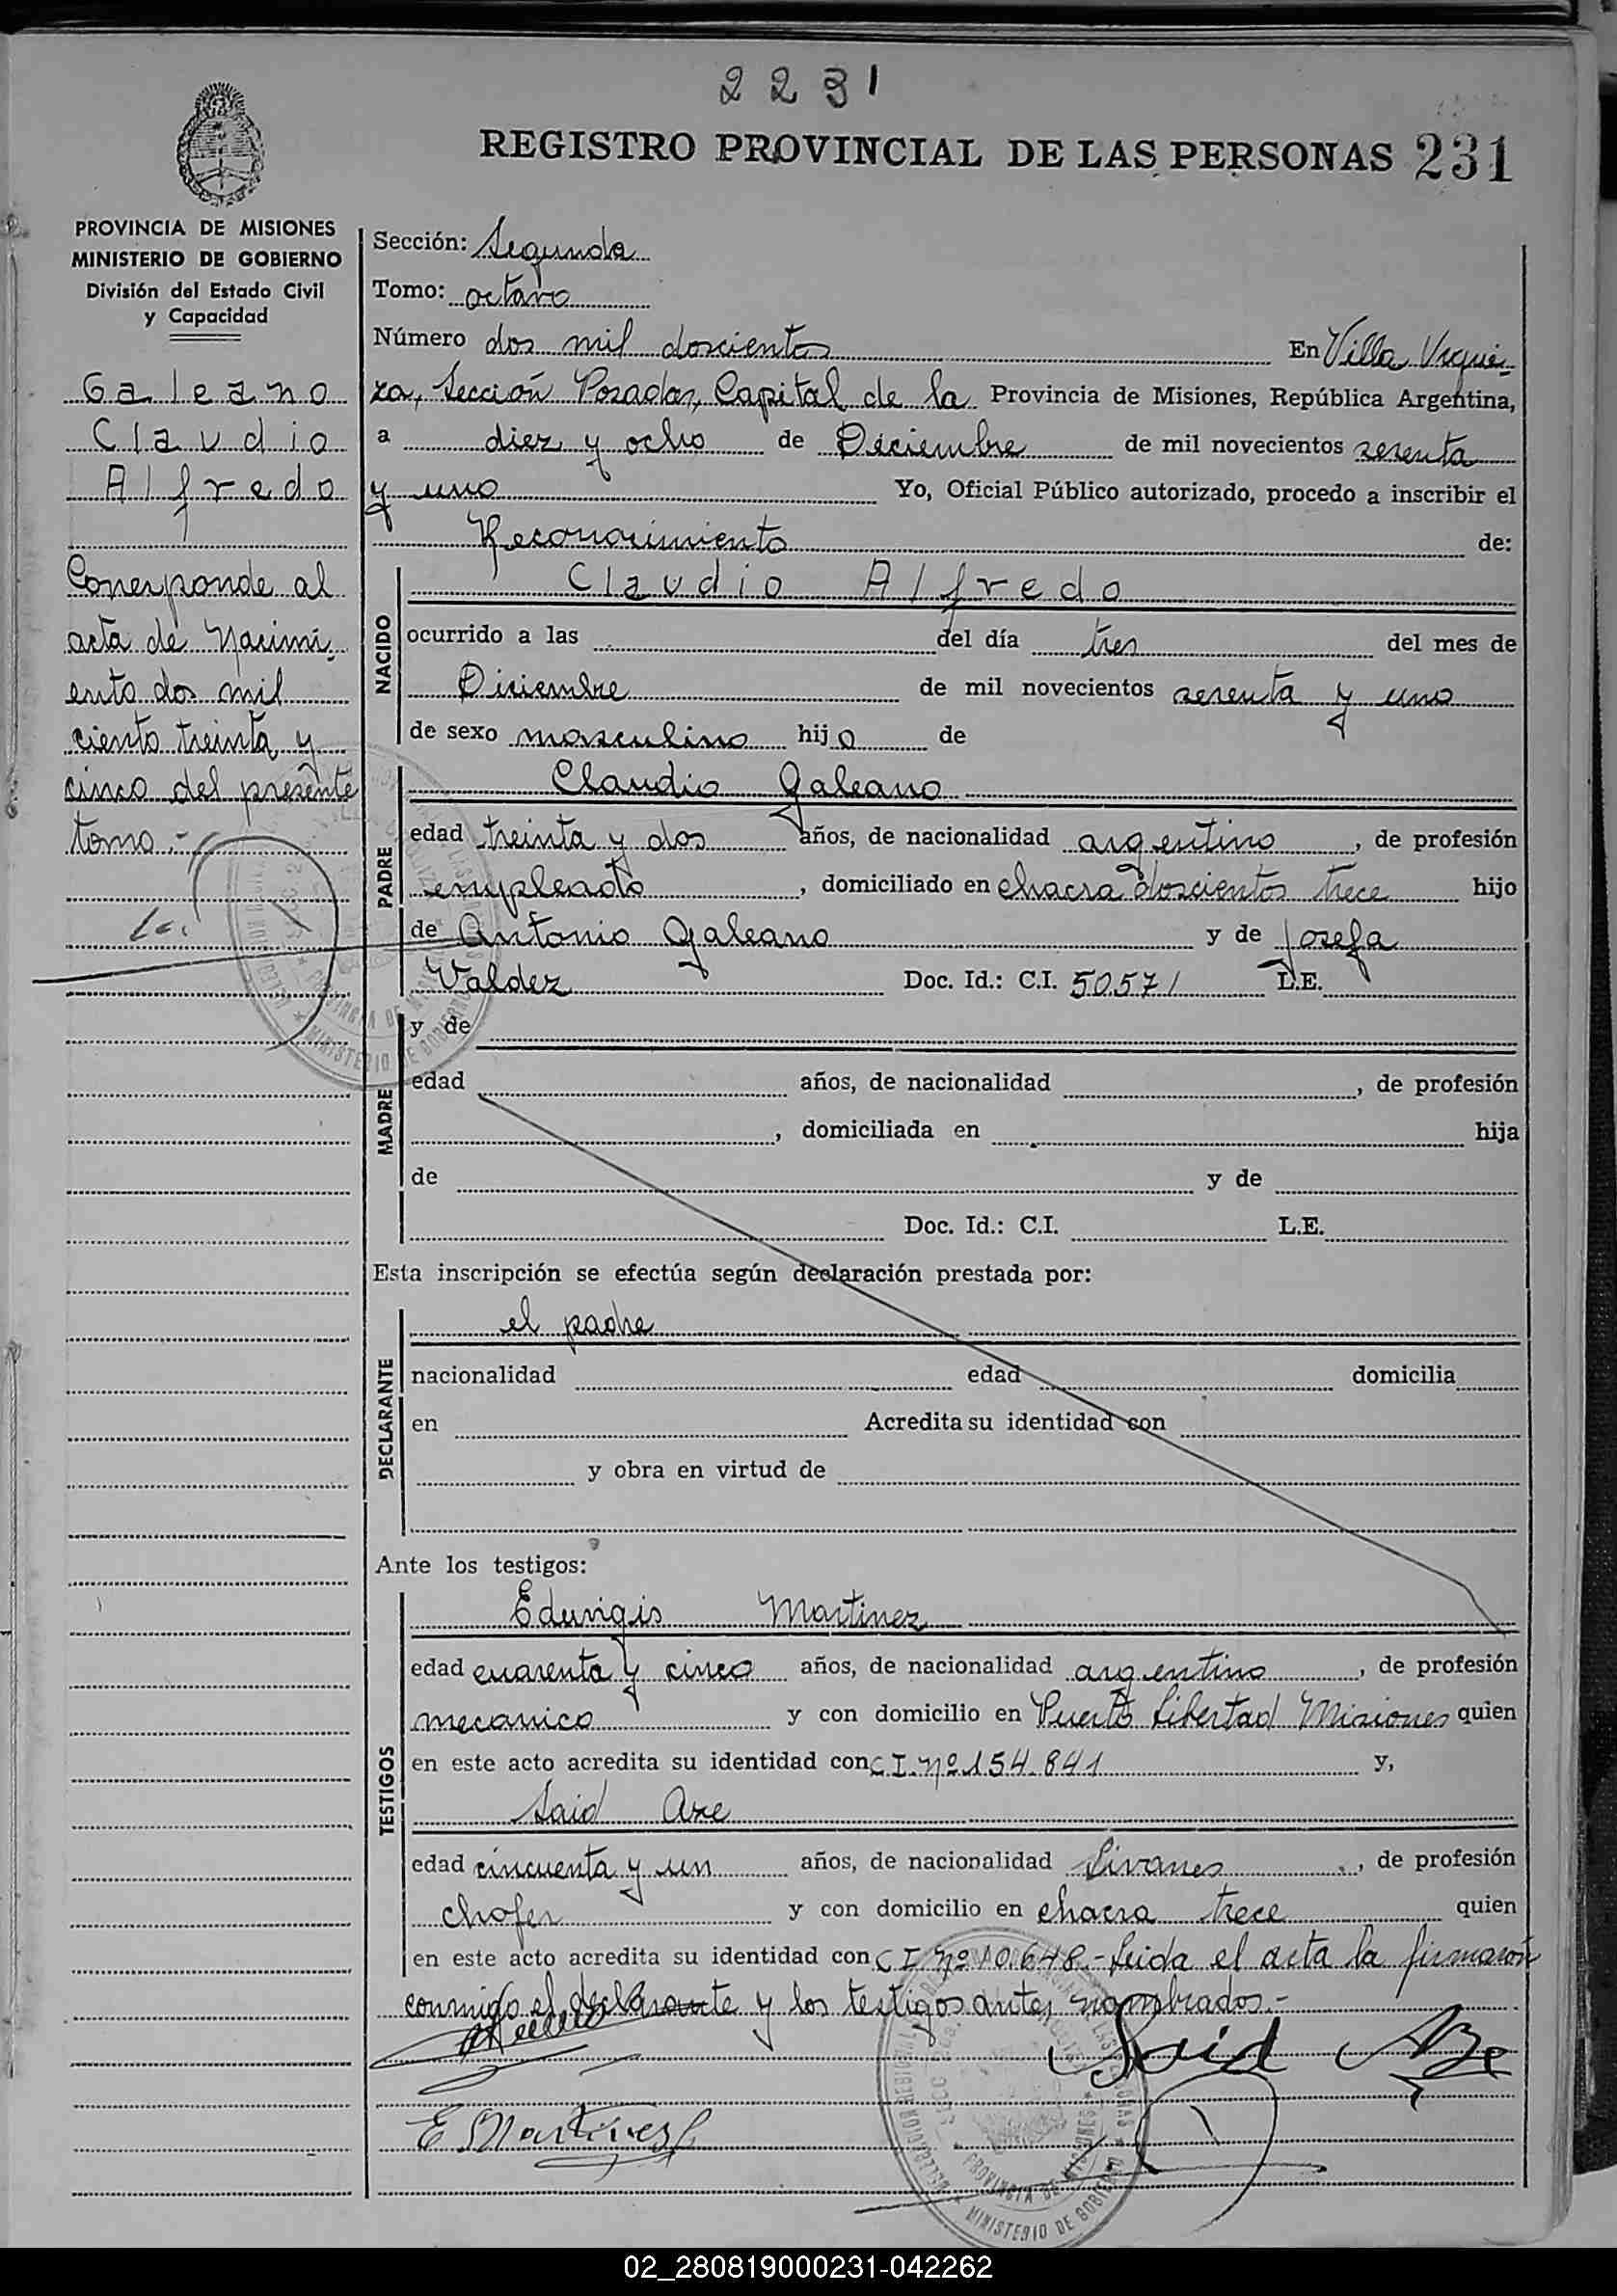 2 2 3 1
REGISTRO PROVINCIAL DE LAS PERSONAS 231
PROVINCIA DE MISIONES
MINISTERIO DE GOBIERNO
División del Estado Civil
y Capacidad
Galeano
Claudio
Alfredo
Corresponde al
acta de Nacimi-
ento dos mil
ciento treinta y
cinco del presente
tomo.-
Sección: Segunda
Tomo: octavo
Número dos mil doscientos En Villa Urqui-
za, Sección Posadas, Capital de la Provincia de Misiones, República Argentina,
a diez y ocho de Diciembre de mil novecientos sesenta
y uno Yo, Oficial Público autorizado, procedo a inscribir el
Reconocimiento de:
NACIDO
Claudio Alfredo
ocurrido a las del día tres del mes de
Diciembre de mil novecientos sesenta y uno
de sexo masculino hijo de
PADRE
Claudio Galeano
edad treinta y dos años, de nacionalidad argentino, de profesión
empleado, domiciliado en chacra doscientos trece hijo
de Antonio Galeano y de Josefa
Valdez Doc. Id.: C.I. 50571 L.E.
MADRE
y de
edad años, de nacionalidad , de profesión
, domiciliada en hija
de y de
Doc. Id.: C.I. L.E.
Esta inscripción se efectúa según declaración prestada por:
DECLARANTE
el padre
nacionalidad edad domicilia
en Acredita su identidad con
y obra en virtud de
Ante los testigos:
TESTIGOS
Eduvigis Martinez
edad cuarenta y cinco años, de nacionalidad argentino, de profesión
mecanico y con domicilio en Puerto Libertad Misiones quien
en este acto acredita su identidad con C.I. Nº 154.841 y,
Said Axe
edad cincuenta y un años, de nacionalidad Livanes, de profesión
chofer y con domicilio en chacra trece quien
en este acto acredita su identidad con C I Nº 10.648.- Leida el acta la firmaron
conmigo el declarante y los testigos antes nombrados.-
Said
E Martinez
PROVINCIA DE MISIONES
MINISTERIO DE GOBIERNO
02_280819000231-042262